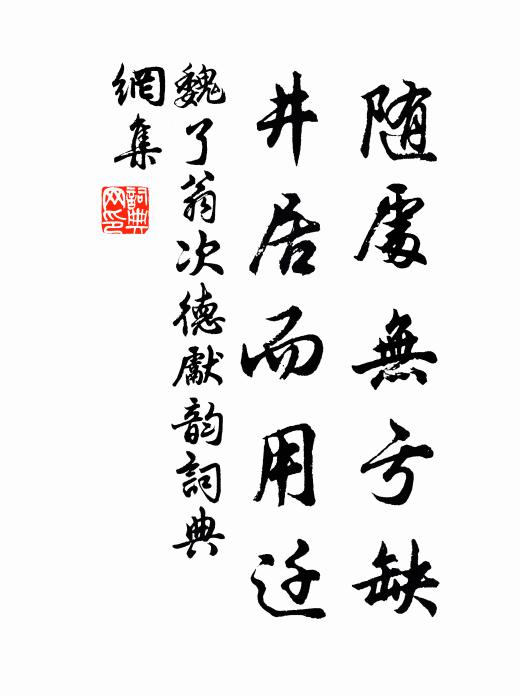 随處無亏缺
井居而用迁
魏了翁次德獻韵詞典
網集
詞典
网印